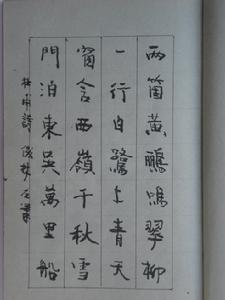 两箇黄鸝鳴翠柳
一行白鷺上青天
窗含西嶺千秋雪
門泊東吳萬里船
杜甫詩